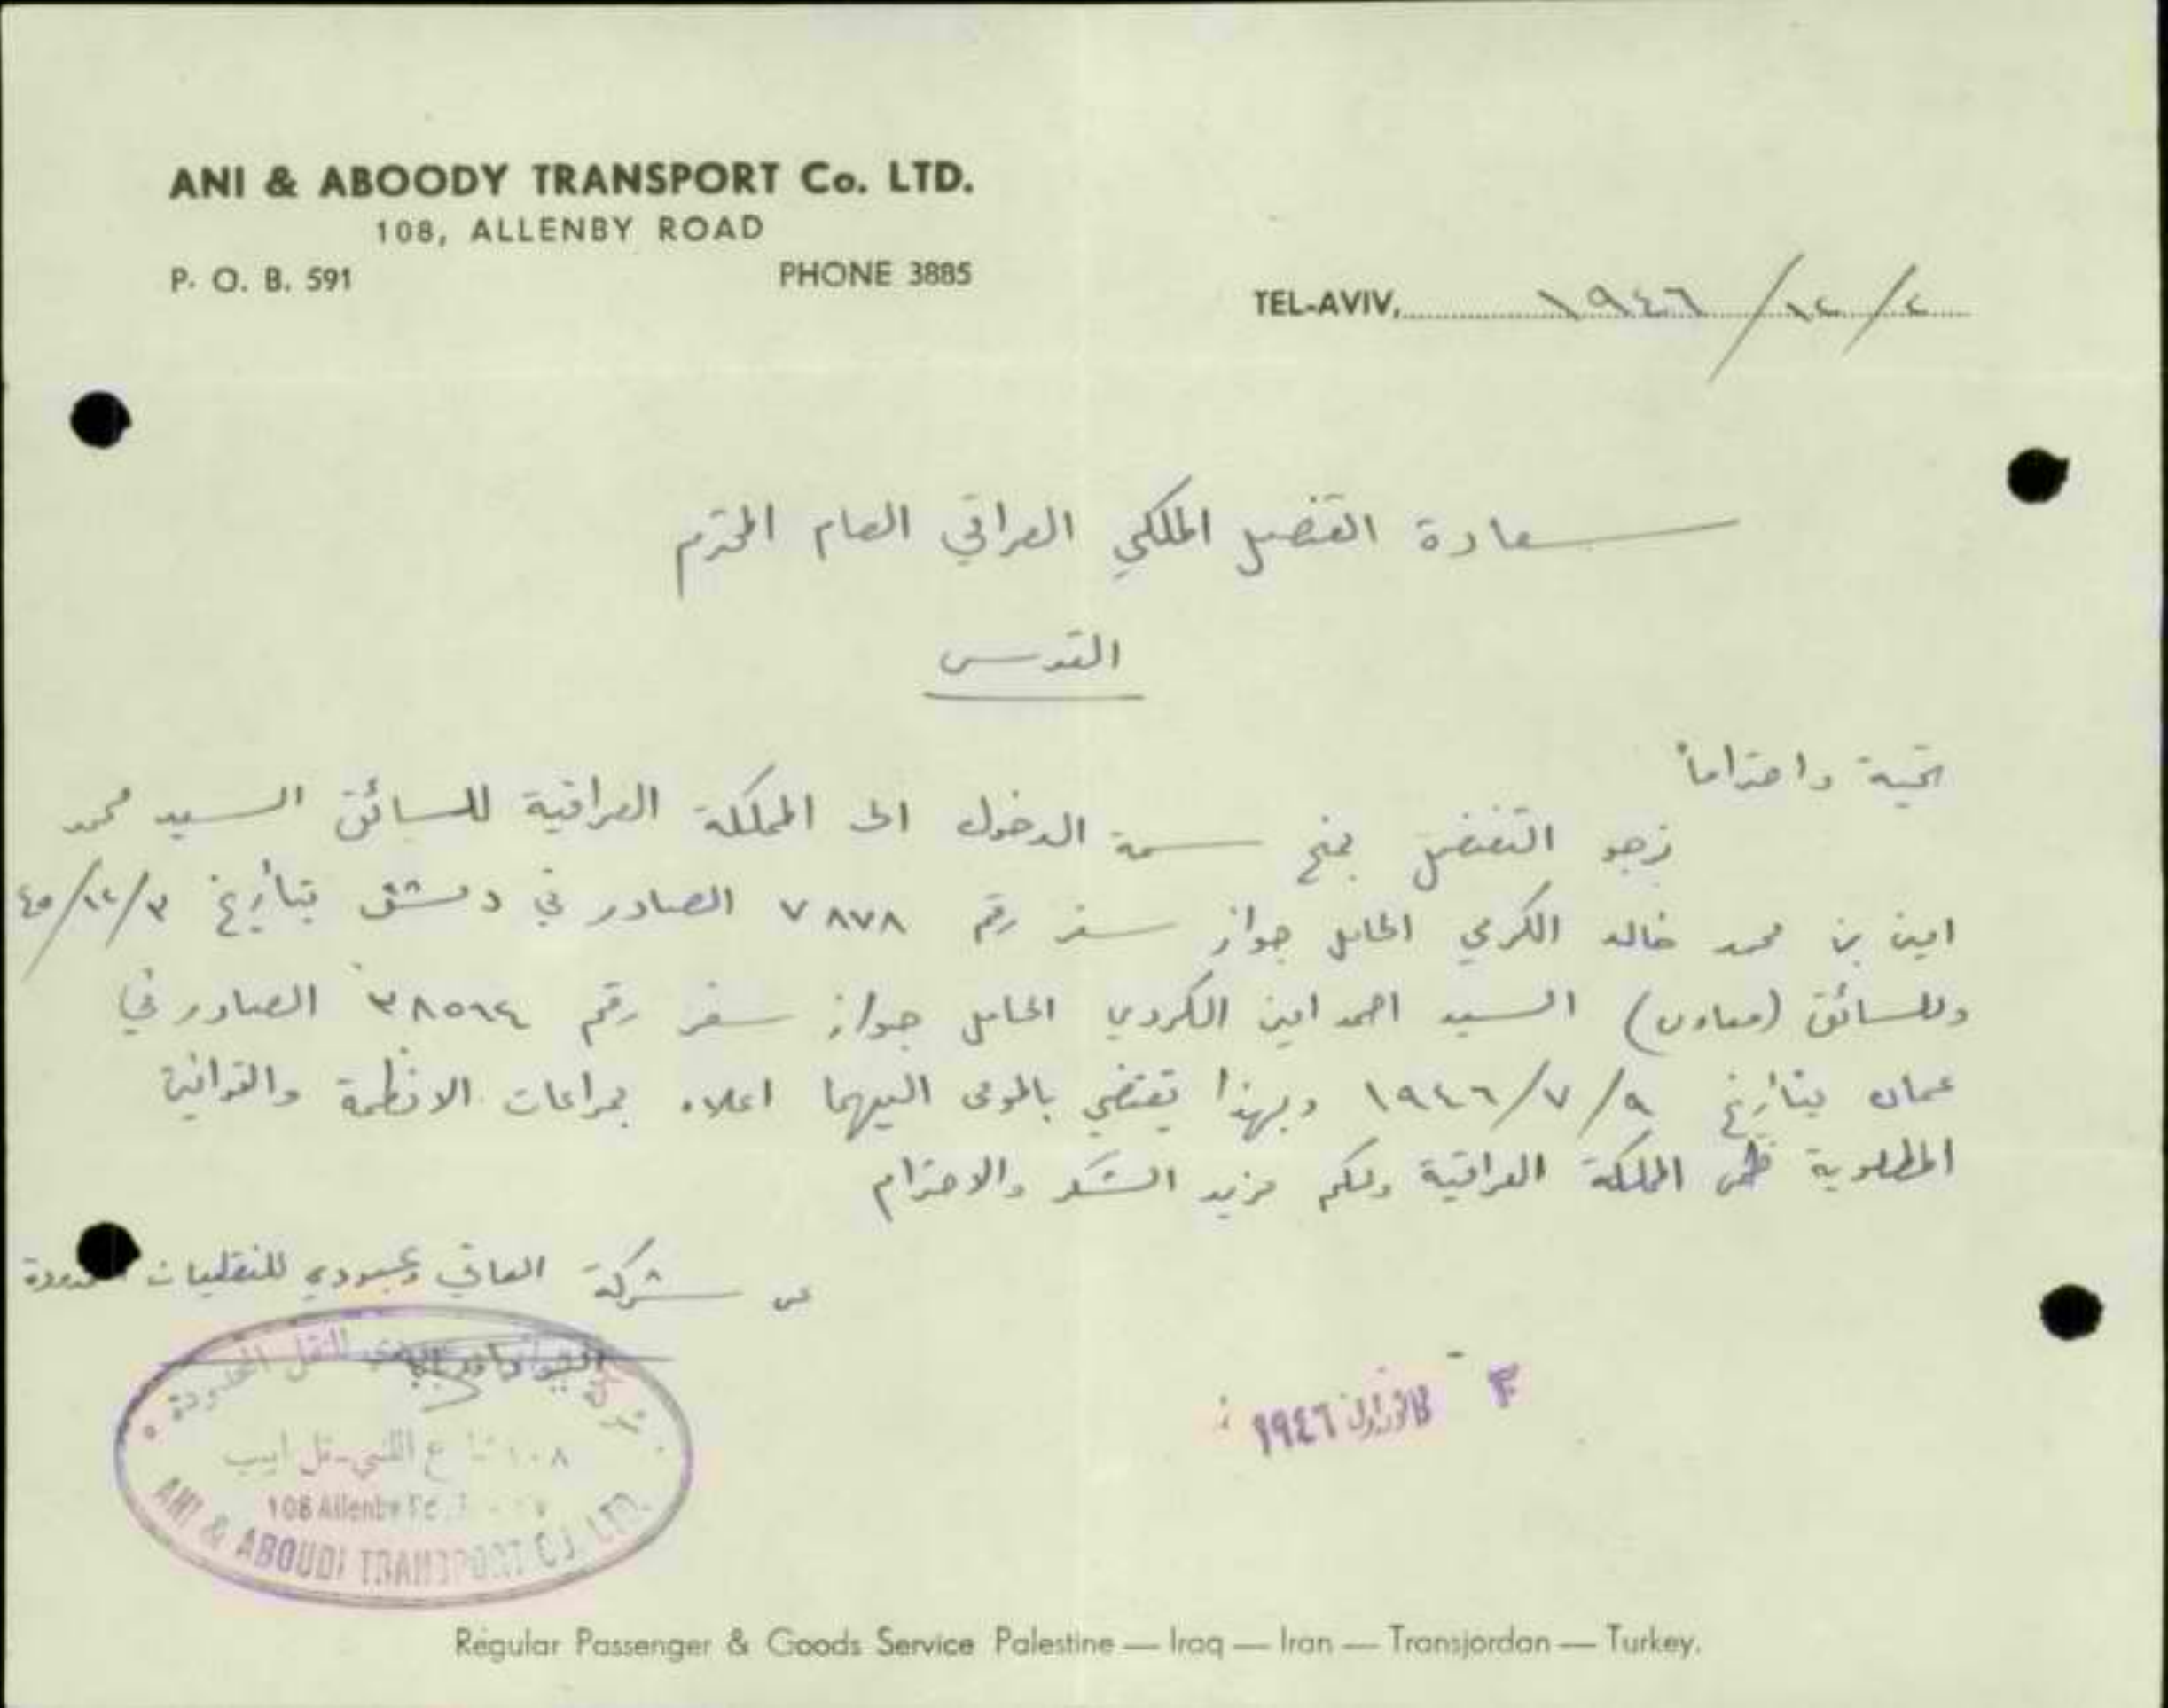 ANI & ABOODY TRANSPORT Co. LTD.
108, ALLENBY ROAD
P. O. B. 591 PHONE 3885
TEL-AVIV, ٢/١٢/١٩٤٦
سعادة القنصل الملكي العراقي العام المحترم
القدس
تحية واحتراماً
نرجو التفضل بمنح سمة الدخول الى المملكة العراقية للسائق السيد محمد
امين بن محمد خالد الكردي الحامل جواز سفر رقم ٧٨٧٨ الصادر في دمشق بتأريخ ٣/١٢/٤٥
وللسائق (معاون) السيد احمد امين الكردي الحامل جواز سفر رقم ٣٨٥٦٤ الصادر في
عمان بتأريخ ٩/٧/١٩٤٦ وبهذا يقتضي بالموما اليهما اعلاه بمراعات الانظمة والقوانين
المطلوبة ضمن المملكة العراقية ولكم مزيد الشكر والاحترام
عن شركة العاني وعبودي للنقليات
للنقل المحدودة
١٠٨ شارع اللنبي - تل ابيب
108 Allenby
ANI & ABOUDI TRANSPORT CO. LTD.
٣ كانون اول ١٩٤٦
Regular Passenger & Goods Service Palestine — Iraq — Iran — Transjordan — Turkey.